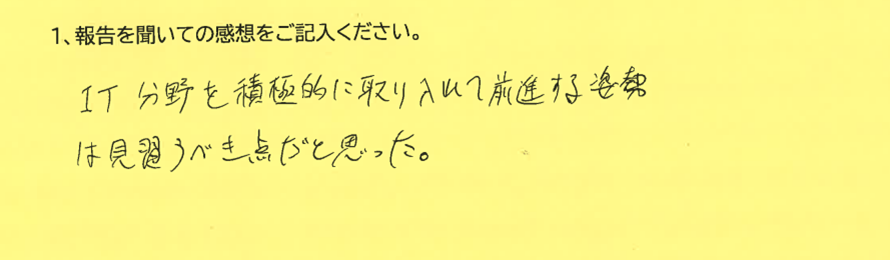 1、報告を聞いての感想をご記入ください。
IT分野を積極的に取り入れて前進する姿勢
は見習うべき点だと思った。